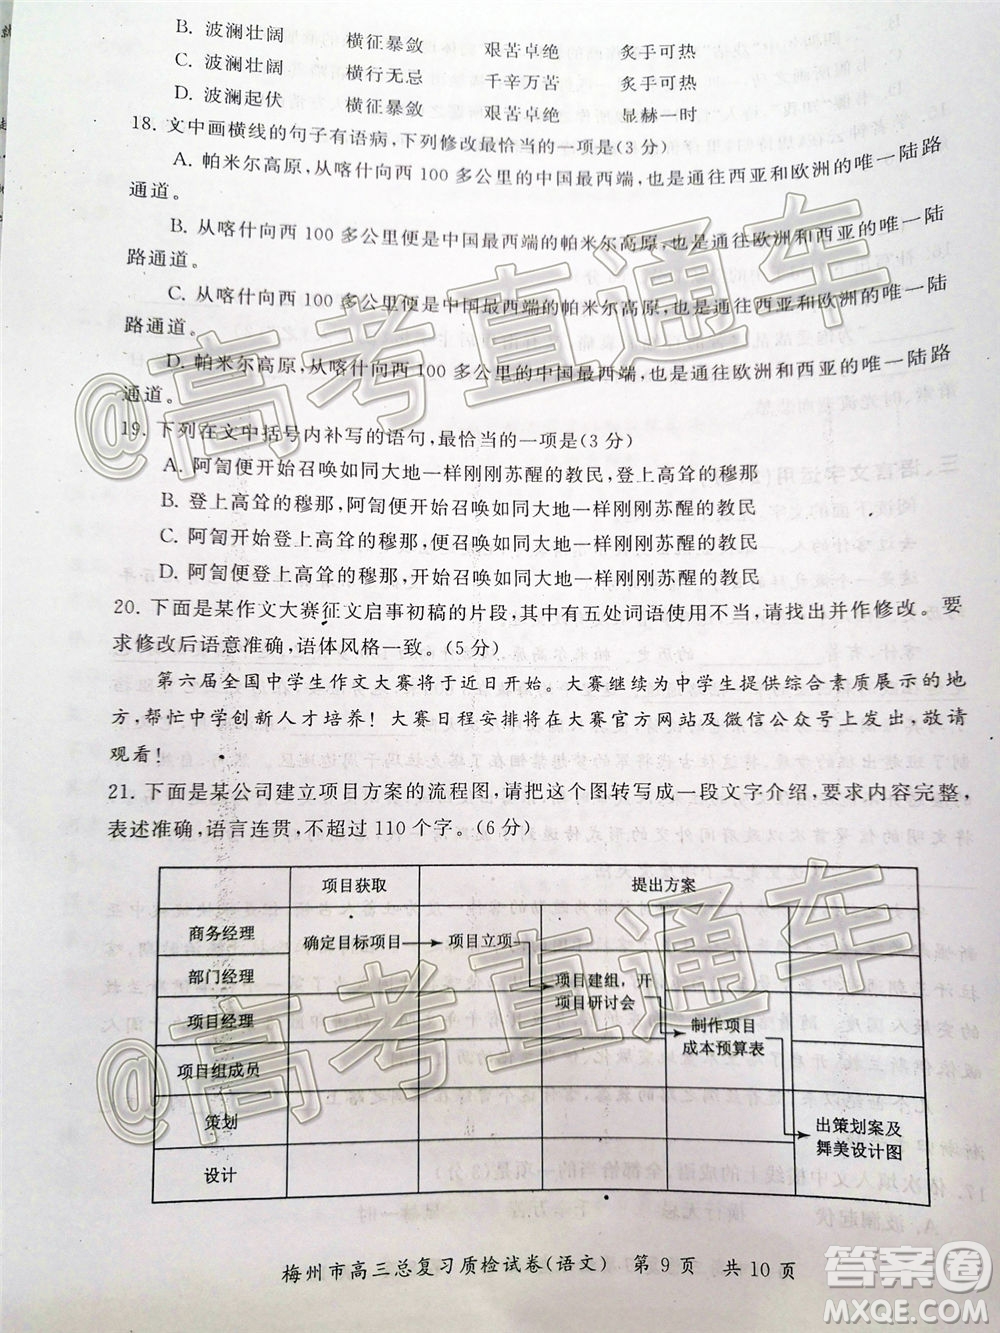 B. 波澜壮阔 横征暴敛 艰苦卓绝 炙手可热
C. 波澜壮阔 横行无忌 千辛万苦 炙手可热
D. 波澜起伏 横征暴敛 艰苦卓绝 显赫一时
18. 文中画横线的句子有语病,下列修改最恰当的一项是(3 分)
A. 帕米尔高原,从喀什向西 100 多公里的中国最西端,也是通往西亚和欧洲的唯一陆路
通道。
B. 从喀什向西 100 多公里便是中国最西端的帕米尔高原,也是通往欧洲和西亚的唯一陆
路通道。
C. 从喀什向西 100 多公里便是中国最西端的帕米尔高原,也是通往西亚和欧洲的唯一陆
路通道。
D. 帕米尔高原,从喀什向西 100 多公里的中国最西端,也是通往欧洲和西亚的唯一陆路
通道。
19. 下列在文中括号内补写的语句,最恰当的一项是(3 分)
A. 阿訇便开始召唤如同大地一样刚刚苏醒的教民,登上高耸的穆那
B. 登上高耸的穆那,阿訇便开始召唤如同大地一样刚刚苏醒的教民
C. 阿訇开始登上高耸的穆那,便召唤如同大地一样刚刚苏醒的教民
D. 阿訇便登上高耸的穆那,开始召唤如同大地一样刚刚苏醒的教民
20. 下面是某作文大赛征文启事初稿的片段,其中有五处词语使用不当,请找出并作修改。要
求修改后语意准确,语体风格一致。(5 分)
第六届全国中学生作文大赛将于近日开始。大赛继续为中学生提供综合素质展示的地
方,帮忙中学创新人才培养!大赛日程安排将在大赛官方网站及微信公众号上发出,敬请
观看!
21. 下面是某公司建立项目方案的流程图,请把这个图转写成一段文字介绍,要求内容完整,
表述准确,语言连贯,不超过 110 个字。(6 分)
项目获取 提出方案
商务经理 确定目标项目 项目立项
部门经理 项目建组,开
项目研讨会
项目经理 制作项目
成本预算表
项目组成员
策划 出策划案及
舞美设计图
设计
梅州市高三总复习质检试卷(语文) 第 9 页 共 10 页
@高考直通车
@高考直通车
答案圈
MXQE.COM